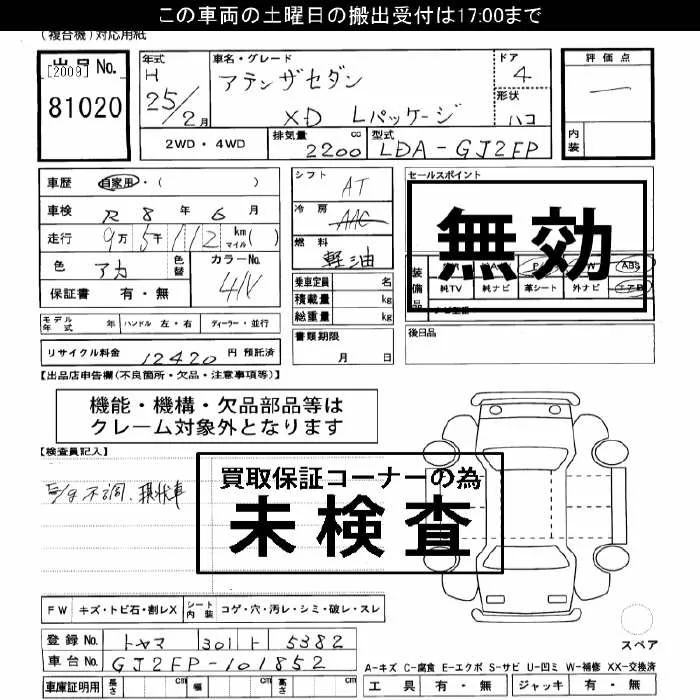 この車両の土曜日の搬出受付は17:00まで
(複合機)対応用紙
出品 No.
[2009]
81020
年式
H
25/2月
車名・グレード
アテンザセダン
XD Lパッケージ
ドア
4
形状
ハコ
評価点
内装
2WD・4WD
排気量
2200
cc
型式
LDA-GJ2FP
車歴
自家用・( )
車検
R 8 年 6 月
走行
9万 5千 112 km マイル ( )
色
アカ
色替
カラーNo.
41V
保証書 有・無
シフト
AT
冷房
AAC
燃料
軽油
乗車定員 名
積載量 kg
総重量 kg
書類期限
月 日
セールスポイント
無効
装備品
ABS
純TV
純ナビ
革シート
外ナビ
エアB
後日品
モデル年式 年
ハンドル 左・右
ディーラー・並行
リサイクル料金 12420 円 預託済
【出品店申告欄(不良箇所・欠品・注意事項等)】
機能・機構・欠品部品等は
クレーム対象外となります
【検査員記入】
不調、現状車
買取保証コーナーの為
未検査
FW キズ・トビ石・割レX
シート内装 コゲ・穴・汚レ・シミ・破レ・スレ
登録 No. トヤマ 301 ト 5382
車台 No. GJ2FP-101852
車庫証明用 長さ cm 幅 cm 高さ cm
スペア
A-キズ C-腐食 E-エクボ S-サビ U-凹ミ W-補修 XX-交換済
工具 有・無
ジャッキ 有・無